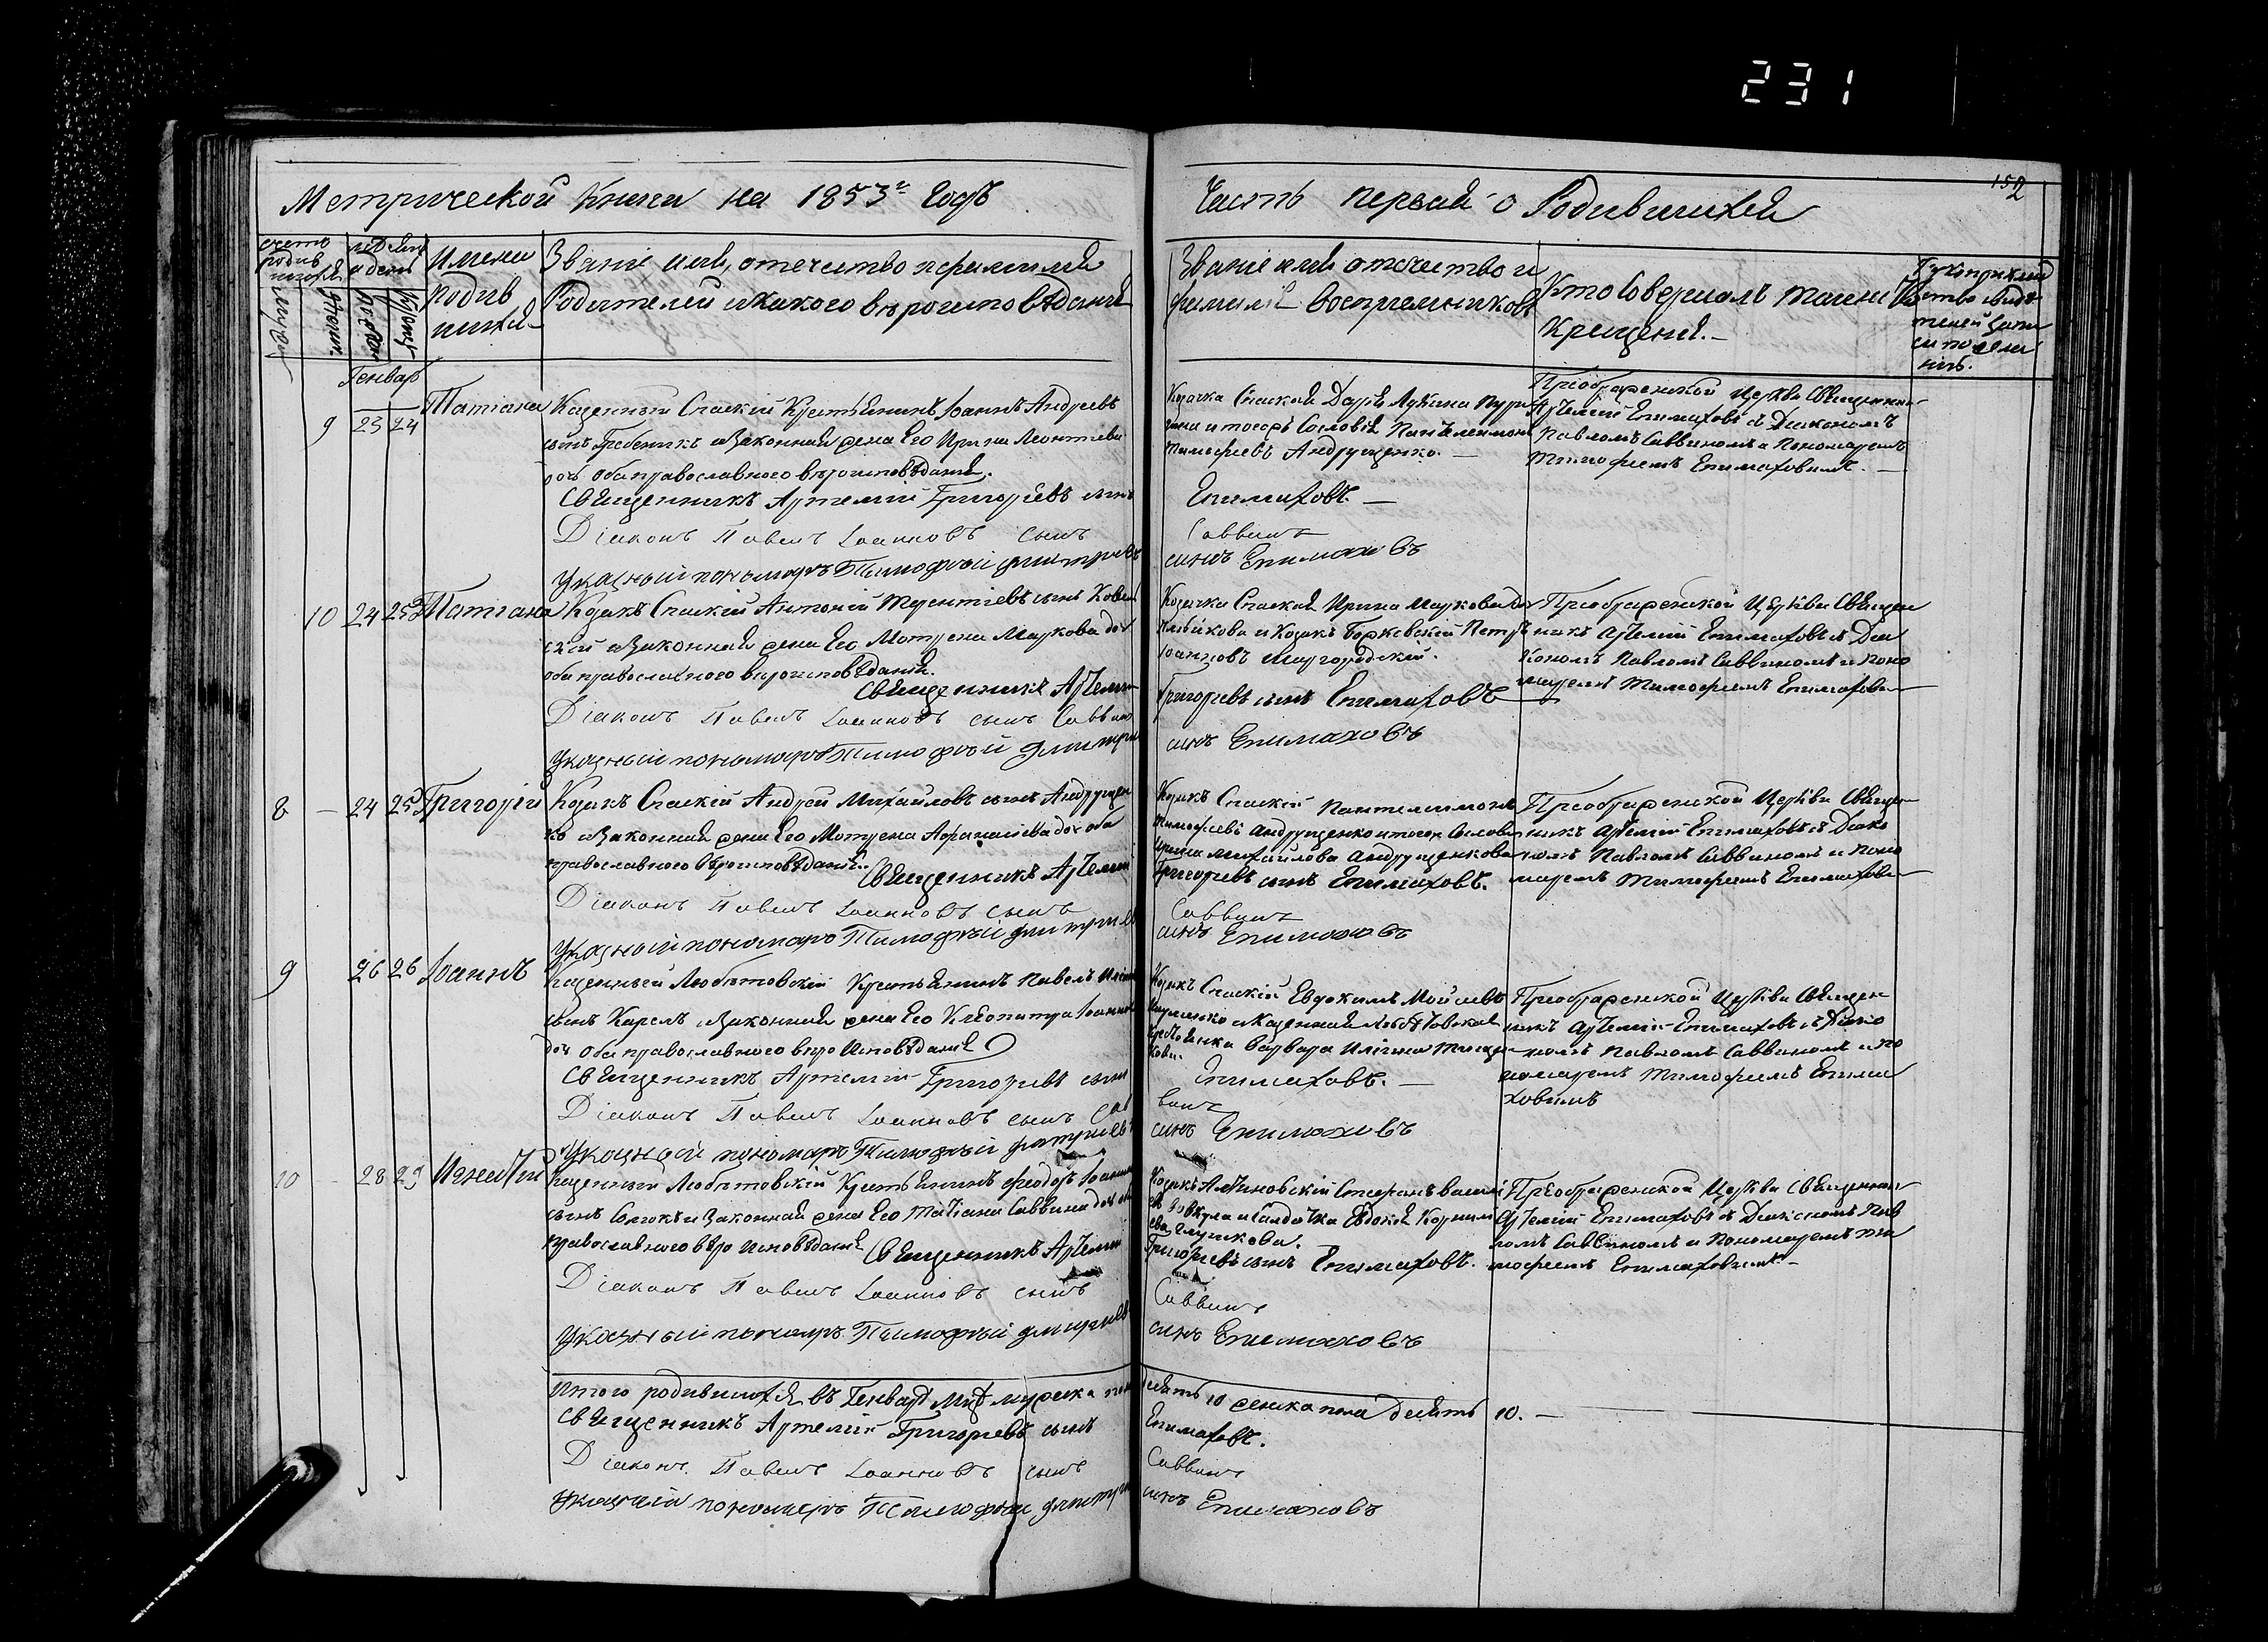 231
152
Метрической книги на 1853й Годъ
Часть первая о Родившихся
счетъ родившихся
мужеск
женск.
мѣсяцъ и день
рожден
крещ
Имена родившихся
Званіе имя, отечество и фамилія
Родителей и какого вѣроисповѣданія
Званіе имя отечество и
фамилія воспріемниковъ
Кто Совершалъ таинство
Крещенія.
Рукоприкладство свидѣтелей записи по желанію.
Генварь
9 23 24 Татіана
Казенный Спаскій Крестьянинъ Іоаннъ Андреевъ
сынъ Гребеникъ и Законная жена Его Ирина Леонтіева
дочь оба православного вѣроисповѣданія.
Священникъ Артемій Григорьевъ сынъ
Діаконъ Павелъ Іоанновъ сынъ
Указный пономарь Тимофѣй Дмитріевъ
Козачка Спаская Дарья Лукина
и тогожъ Сословія Пантелеимонъ
Тимофеевъ Андрущенко.
Епимаховъ.
Саввинъ
сынъ Епимаховъ
Преображенской Церкви Священникъ
Артемій Епимаховъ съ Діакономъ
Павломъ Саввиномъ и Пономаремъ
Тимофеемъ Епимаховымъ.
10 24 25 Татіана
Козакъ Спаскій Антоній Терентіевъ сынъ
и Законная жена Его Мотрена Маркова доч
оба православного вѣроисповѣданія.
Священникъ Артемій
Діаконъ Павелъ Іоанновъ сынъ Саввинъ
Указный пономарь Тимофѣй Дмитріевъ
Козачка Спаская Ирина Маркова
и Козакъ Борковскій Петръ
Іоанновъ Миргородскій.
Григорьевъ сынъ Епимаховъ
сынъ Епимаховъ
Преображенской Церкви Священ
никъ Артемій Епимаховъ съ Діа
кономъ Павломъ Саввиномъ и поно
маремъ Тимофеемъ Епимаховы
8 — 24 25 Григорій
Козакъ Спаскій Андрей Михайловъ сынъ Андрущен
ко и Законная жена Его Мотрена Афанасіева доч оба
православного вѣроисповѣданія. Священникъ Артемій
Діаконъ Павелъ Іоанновъ сынъ
Указный пономарь Тимофѣй Дмитріевъ
Козакъ Спаскій Пантелеимонъ
Тимофеевъ Андрущенко и тогож Сословія
Ирина Михайлова Андрущенкова
Григорьевъ сынъ Епимаховъ.
Саввинъ
сынъ Епимаховъ
Преображенской Церкви Священ
никъ Артемій Епимаховъ съ Діако
номъ Павломъ Саввиномъ и поно
маремъ Тимофеемъ Епимаховы
9 26 26 Іоаннъ
Казенный Любитовскій Крестьянинъ Павелъ
сынъ Карелъ и Законная жена Его Клеопатра Іоаннова
доч оба православного вѣро Исповѣданія
Священникъ Артемій Григорьевъ сынъ
Діаконъ Павелъ Іоанновъ сынъ Саввинъ
Указный пономарь Тимофѣй Дмитріевъ
Козакъ Спаскій Евдокимъ Мойсеевъ
и Казенная Любитовская
крестьянка Варвара
Епимаховъ.
сынъ Епимаховъ
Преображенской Церкви Священ
никъ Артемій Епимаховъ съ Діако
номъ Павломъ Саввиномъ и по
номаремъ Тимофеемъ Епима
ховымъ
10 — 28 29 Игнатій
Казенный Любитовскій Крестьянинъ Феодоръ Іоаннов
сынъ и Законная жена Его Татіана Саввина доч оба
православного вѣро Исповѣданія Священникъ Артемій
Діаконъ Павелъ Іоанновъ сынъ
Указный пономарь Тимофѣй Дмитріевъ
Козакъ Алтиновскій Стефанъ
Вовкула и Солдатка Евдокія Корнилі
ева Глушкова.
Григорьевъ сынъ Епимаховъ.
Саввинъ
сынъ Епимаховъ
Преображенской Церкви Священник
Артемій Епимаховъ съ Діакономъ Пав
ломъ Саввиномъ и Пономаремъ Ти
мофеемъ Епимаховымъ
Итого родившихся въ Генварѣ м-цѣ мужска пола десять 10 женска пола десять 10. —
Священникъ Артемій Григорьевъ сынъ Епимаховъ.
Діаконъ Павелъ Іоанновъ сынъ Саввинъ
Указный пономарь Тимофѣй Дмитріевъ сынъ Епимаховъ